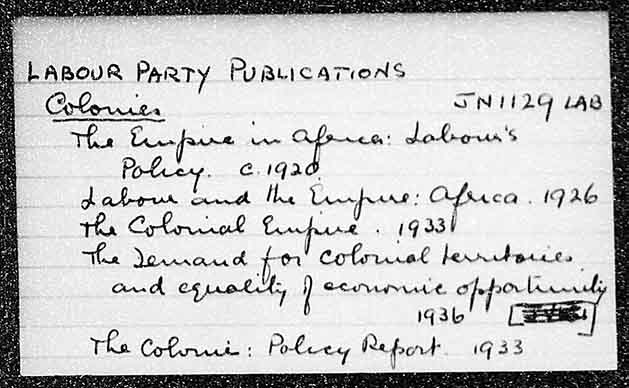 LABOUR PARTY PUBLICATIONS
Colonies JN1129 LAB
The Empire in Africa: Labour's
Policy. c.1920
Labour and the Empire: Africa. 1926
The Colonial Empire. 1933
The Demand for colonial territories
and equality of economic opportunity
1936
The Colonies: Policy Report. 1933